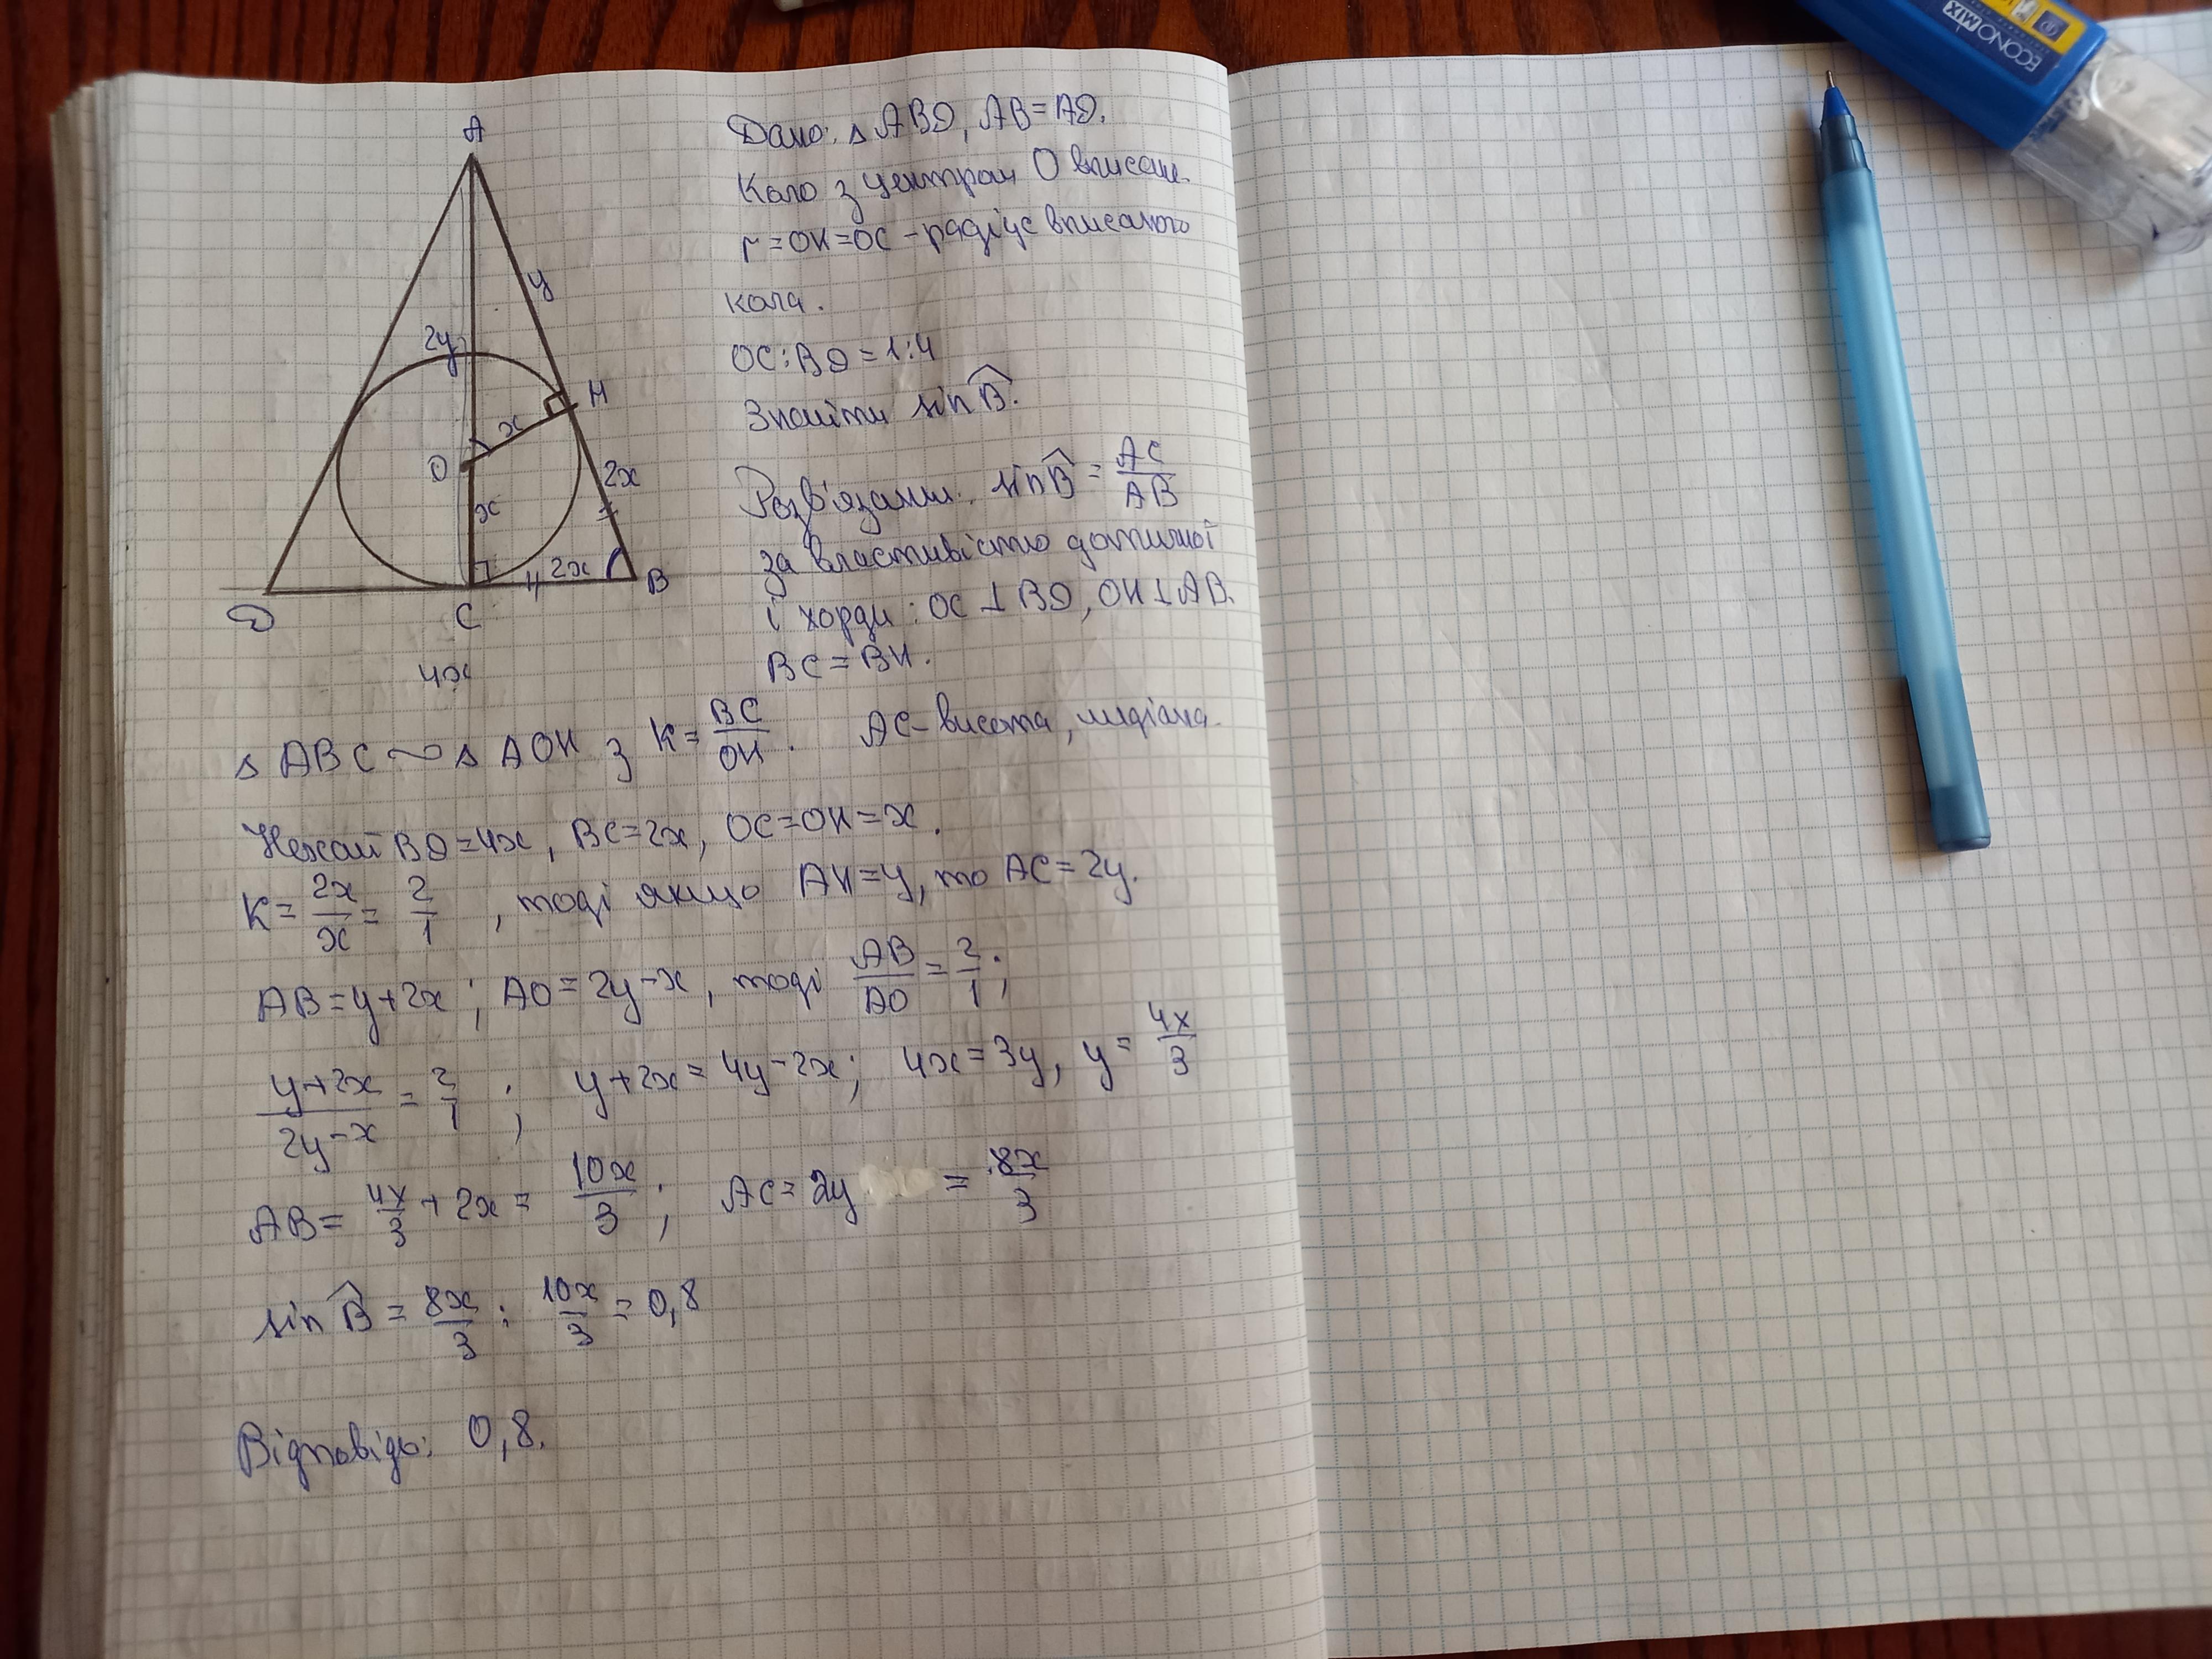 ECONOMIX
A
y
2y
H
x
O
2x
x
2x
D
C
B
4x
Дано: △ ABD, AB=AD.
Коло з центром O вписане.
r=OH=OC - радіус вписаного
кола.
OC:BD=1:4
Знайти sin B̂.
Розв'язання. sin B̂ = AC/AB
за властивістю дотичної
і хорди: OC⊥BD, OH⊥AB.
BC=BH.
△ ABC ~ △ AOH з K=BC/OH. AC-висота, медіана.
Нехай BD=4x, BC=2x, OC=OH=x.
K=2x/x=2/1, тоді якщо AH=y, то AC=2y.
AB=y+2x; AO=2y-x, тоді AB/AO=2/1;
(y+2x)/(2y-x)=2/1; y+2x=4y-2x; 4x=3y, y=4x/3
AB=4x/3+2x=10x/3; AC=2y=8x/3
sin B̂=8x/3:10x/3=0,8
Відповідь: 0,8.